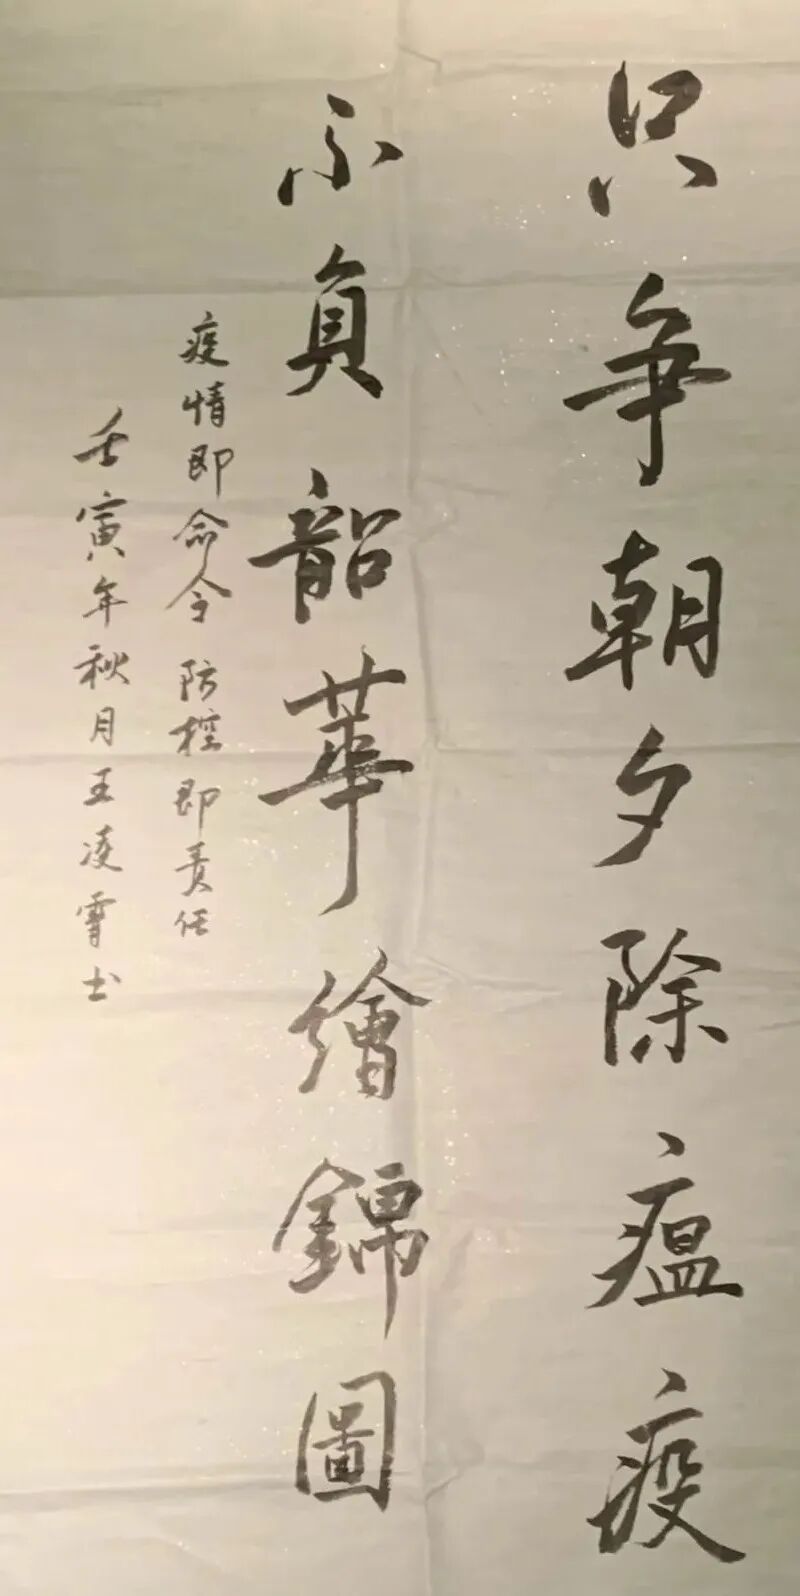 只争朝夕除瘟疫
不負韶華繪錦圖
疫情即命令 防控即责任
壬寅年秋月王凌霄书